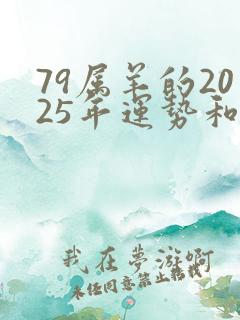 79属羊的20
25年運势和
我在夢游啊
未经同意禁止转载